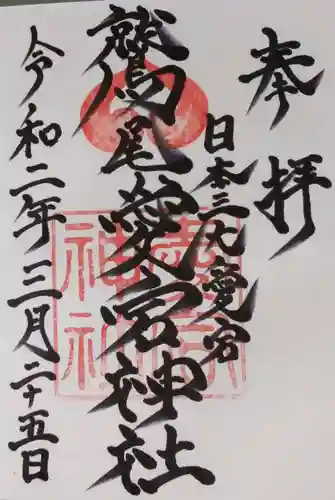 奉拝
日本三大愛宕
鷲尾愛宕神社
令和二年三月二十五日